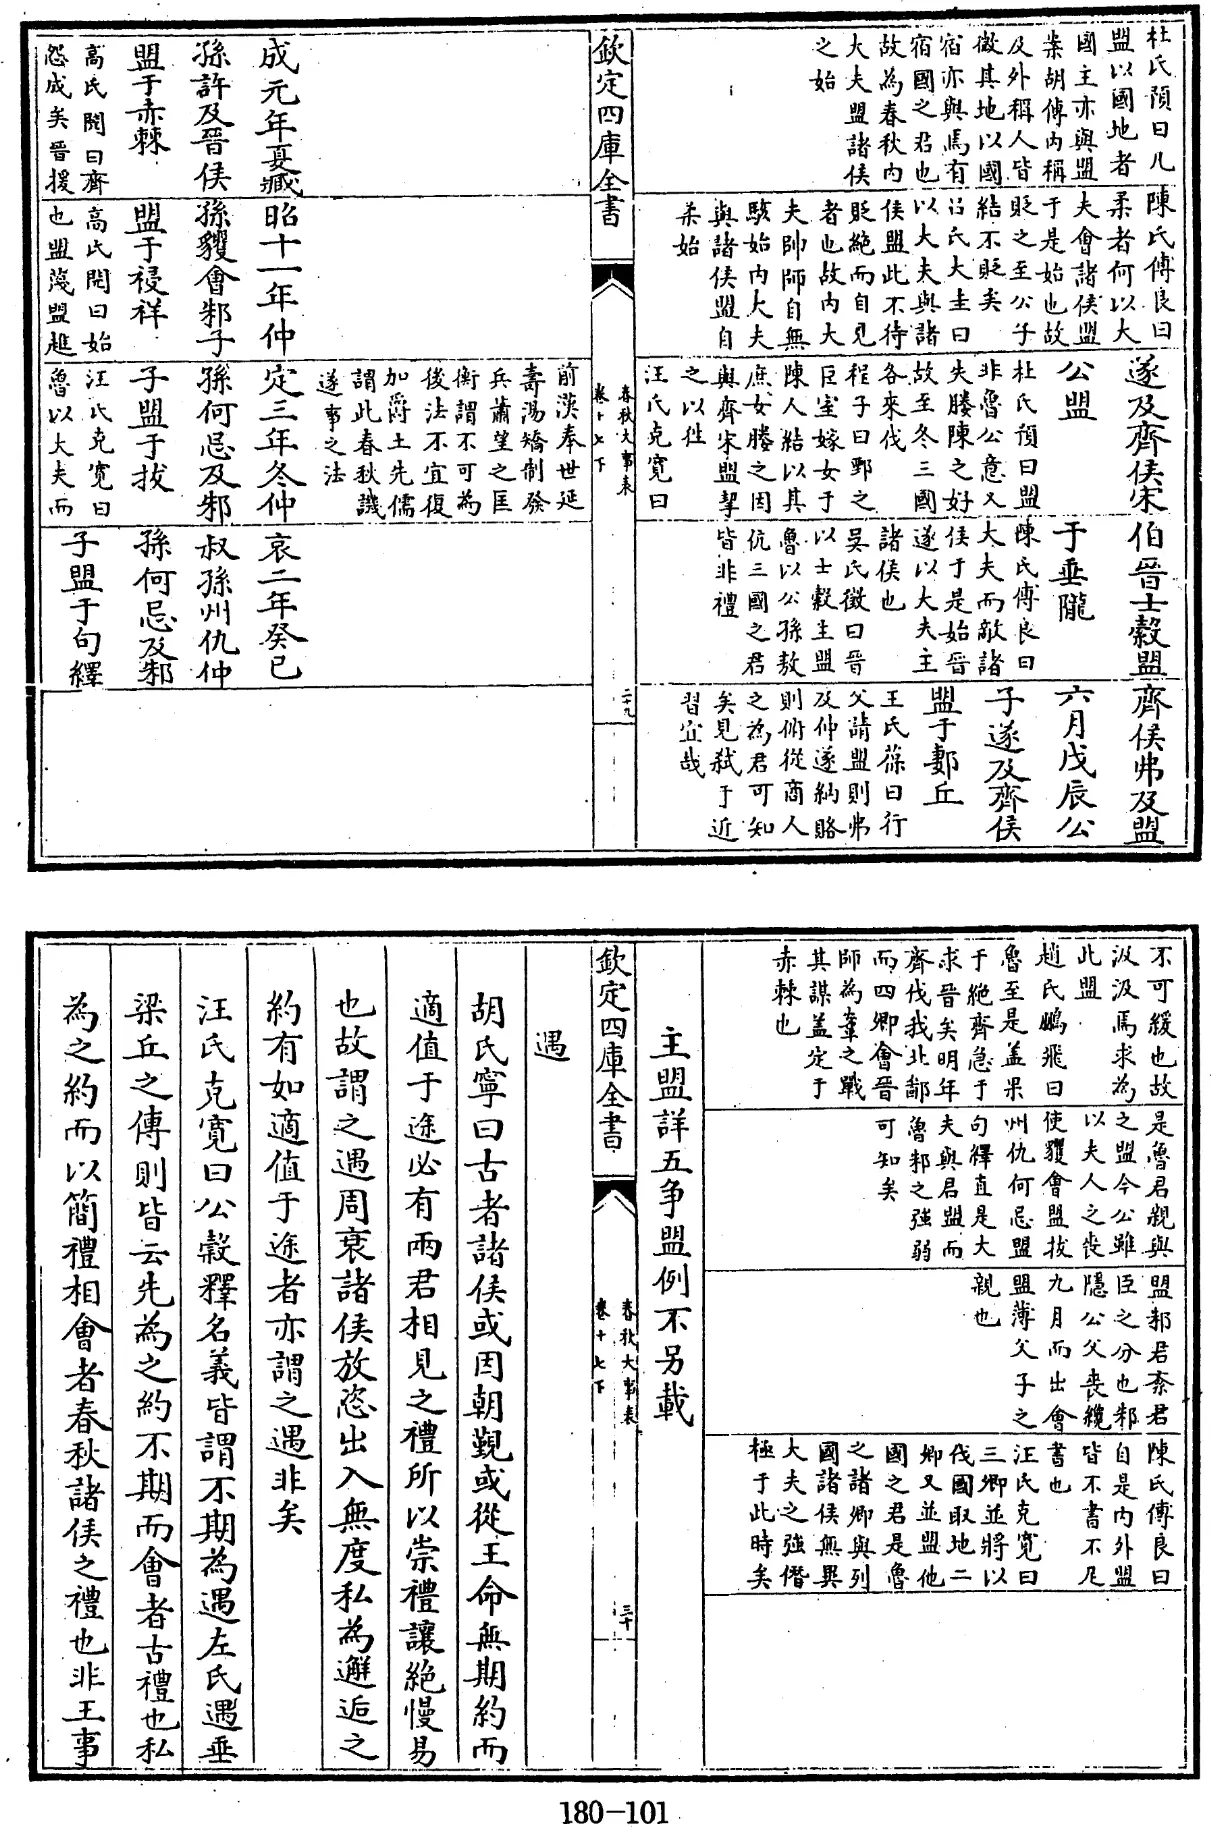 杜氏預曰凡
盟以國地者
國主亦與盟
柴胡傳內稱
及外稱人皆
微其地以國
宿亦與焉有
宿國之君也
故為春秋內
大夫盟諸侯
之始
陳氏傅良曰
柔者何以大
夫會諸侯盟
于是始也故
貶之至公子
結不貶矣
呂氏大圭曰
以大夫與諸
侯盟此不待
貶絶而自見
者也故內大
夫帥師自無
駭始內大夫
與諸侯盟自
柔始
遂及齊侯宋
公盟
杜氏預曰盟
非魯公意又
失媵陳之好
故至冬三國
各來伐
程子曰鄄之
巨室嫁女于
陳人結以其
庶女媵之因
與齊宋盟挈
之以往
汪氏克寛曰
伯晉士縠盟
于垂隴
陳氏傅良曰
大夫而敵諸
侯于是始晉
遂以大夫主
諸侯也
吳氏徵曰晉
以士縠主盟
魯以公孫敖
伉三國之君
皆非禮
齊侯弗及盟
六月戊辰公
子遂及齊侯
盟于郪丘
王氏葆曰行
父請盟則弗
及仲遂納賂
則俯從商人
之為君可知
矣見弒于近
習宜哉
欽定四庫全書
春秋大事表
卷十七下
二十九
成元年夏臧
孫許及晉侯
盟于赤棘
高氏閌曰齊
怨成矣晉援
昭十一年仲
孫貜會邾子
盟于祲祥
高氏閌曰始
也盟蔑盟趡
前漢奉世延
壽湯矯制發
兵蕭望之匡
衡謂不可為
後法不宜復
加爵土先儒
謂此春秋譏
遂事之法
定三年冬仲
孫何忌及邾
子盟于拔
汪氏克寛曰
魯以大夫而
哀二年癸巳
叔孫州仇仲
孫何忌及邾
子盟于句繹
不可緩也故
汲汲焉求為
此盟
趙氏鵬飛曰
魯至是盖果
于絶齊急于
求晉矣明年
齊伐我北鄙
而四卿會晉
師為鞌之戰
其謀盖定于
赤棘也
是魯君親與
之盟今公雖
以夫人之喪
使貜會盟拔
州仇何忌盟
句繹直是大
夫與君盟而
魯邾之強弱
可知矣
盟邾君柰君
臣之分也邾
隱公父喪纔
九月而出會
盟薄父子之
親也
陳氏傅良曰
自是內外盟
皆不書不足
書也
汪氏克寛曰
三卿並將以
伐國取地二
卿又並盟他
國之君是魯
之諸卿與列
國諸侯無異
大夫之強僭
極于此時矣
主盟詳五爭盟例不另載
欽定四庫全書
春秋大事表
卷十七下
三十
遇
胡氏寧曰古者諸侯或因朝覲或從王命無期約而
適值于途必有兩君相見之禮所以崇禮讓絶慢易
也故謂之遇周衰諸侯放恣出入無度私為邂逅之
約有如適值于途者亦謂之遇非矣
汪氏克寛曰公縠釋名義皆謂不期為遇左氏遇垂
梁丘之傳則皆云先為之約不期而會者古禮也私
為之約而以簡禮相會者春秋諸侯之禮也非王事
180-101